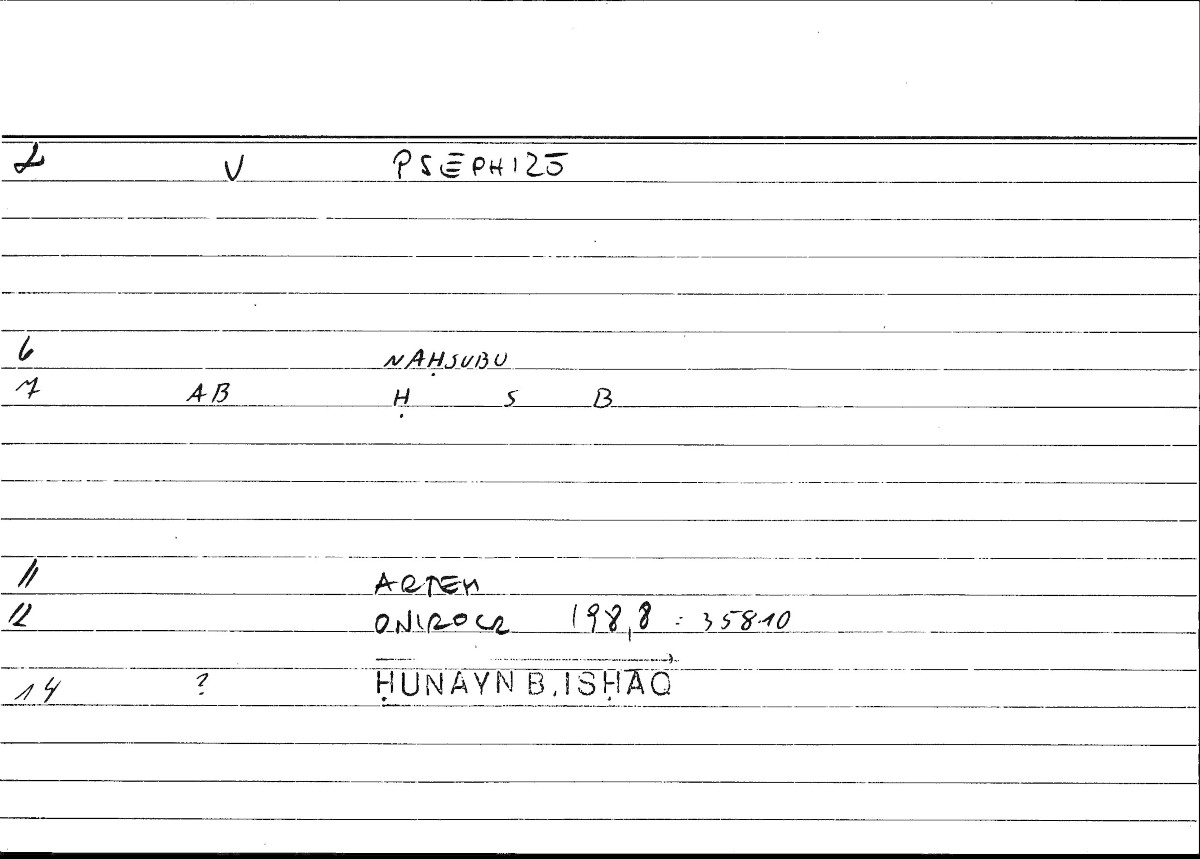 2 V PSĒPHIZŌ
6 NAḤSUBU
7 AB Ḥ S B
11 ARTEM
12 ONIROCR 198,8 : 358.10
14 ? ḤUNAYN B. ISḤĀQ